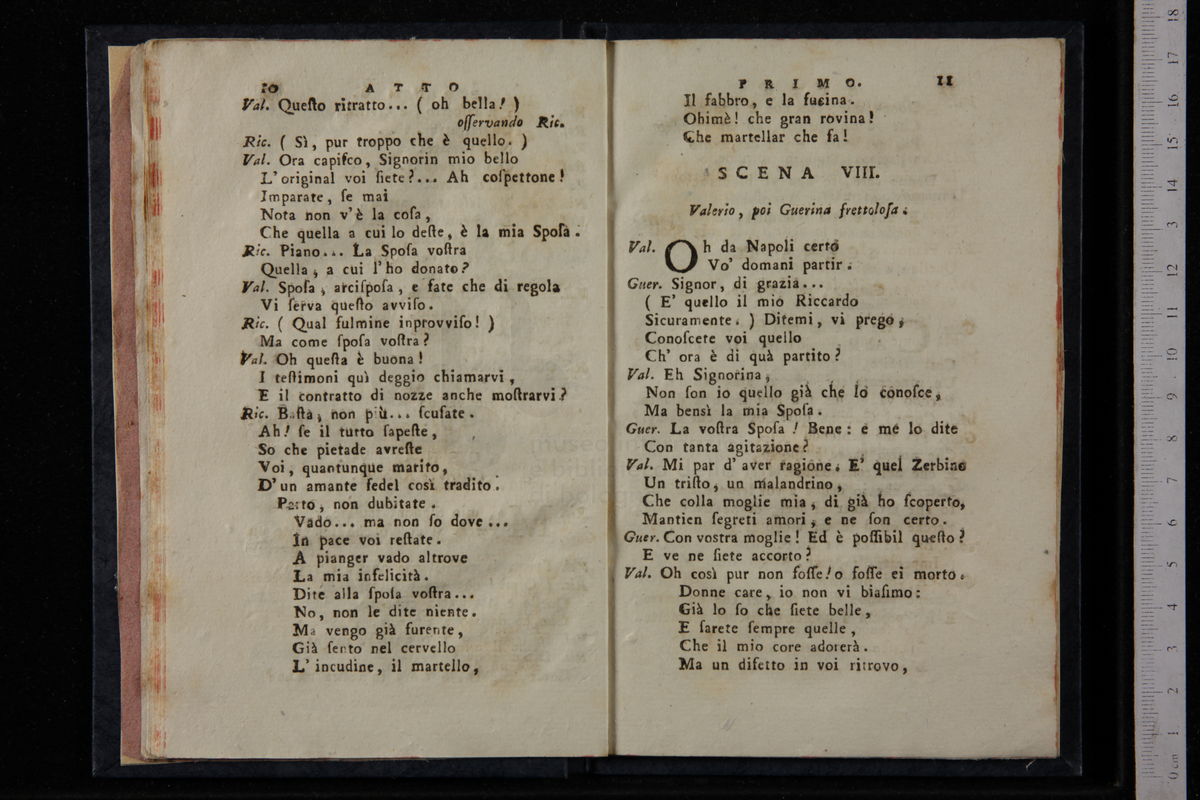 10 ATTO
Val. Queſto ritratto... ( oh bella! )
oſſervando Ric.
Ric. ( Sì, pur troppo che è quello. )
Val. Ora capiſco, Signorin mio bello
L'original voi ſiete?... Ah coſpettone!
Imparate, ſe mai
Nota non v'è la coſa,
Che quella a cui lo deſte, è la mia Spoſa.
Ric. Piano... La Spoſa voſtra
Quella, a cui l'ho donato?
Val. Spoſa, arciſpoſa, e fate che di regola
Vi ſerva queſto avviſo.
Ric. ( Qual fulmine inprovviſo! )
Ma come ſpoſa voſtra?
Val. Oh queſta è buona!
I teſtimoni quì deggio chiamarvi,
E il contratto di nozze anche moſtrarvi?
Ric. Baſta, non più... ſcuſate.
Ah! ſe il tutto ſapeſte,
So che pietade avreſte
Voi, quantunque marito,
D'un amante fedel così tradito.
Parto, non dubitate.
Vado... ma non ſo dove...
In pace voi reſtate.
A pianger vado altrove
La mia infelicità.
Dite alla ſpoſa voſtra...
No, non le dite niente.
Ma vengo già furente,
Già ſento nel cervello
L'incudine, il martello,
PRIMO. 11
Il fabbro, e la fucina.
Ohimè! che gran rovina!
Che martellar che fa!
SCENA VIII.
Valerio, poi Guerina frettoloſa.
Val. Oh da Napoli certo
Vo' domani partir.
Guer. Signor, di grazia...
( E' quello il mio Riccardo
Sicuramente. ) Ditemi, vi prego,
Conoſcete voi quello
Ch' ora è di quà partito?
Val. Eh Signorina,
Non ſon io quello già che lo conoſce,
Ma bensì la mia Spoſa.
Guer. La voſtra Spoſa! Bene: e me lo dite
Con tanta agitazione?
Val. Mi par d'aver ragione. E' quel Zerbino
Un triſto, un malandrino,
Che colla moglie mia, di già ho ſcoperto,
Mantien ſegreti amori, e ne ſon certo.
Guer. Con vostra moglie! Ed è poſſibil queſto?
E ve ne ſiete accorto?
Val. Oh così pur non foſſe! o foſſe ei morto.
Donne care, io non vi biaſimo:
Già lo ſo che ſiete belle,
E ſarete ſempre quelle,
Che il mio core adorerà.
Ma un difetto in voi ritrovo,